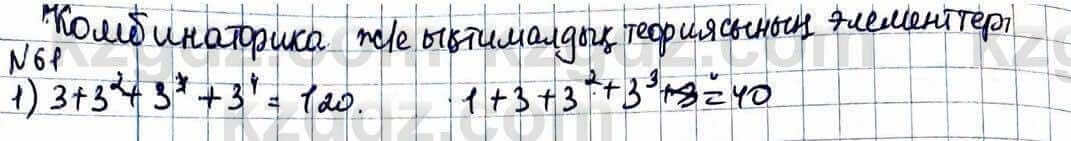 Комбинаторика және ықтималдық теориясының элементтері
№61
1) 3+3²+3³+3⁴=120. 1+3+3²+3³=40